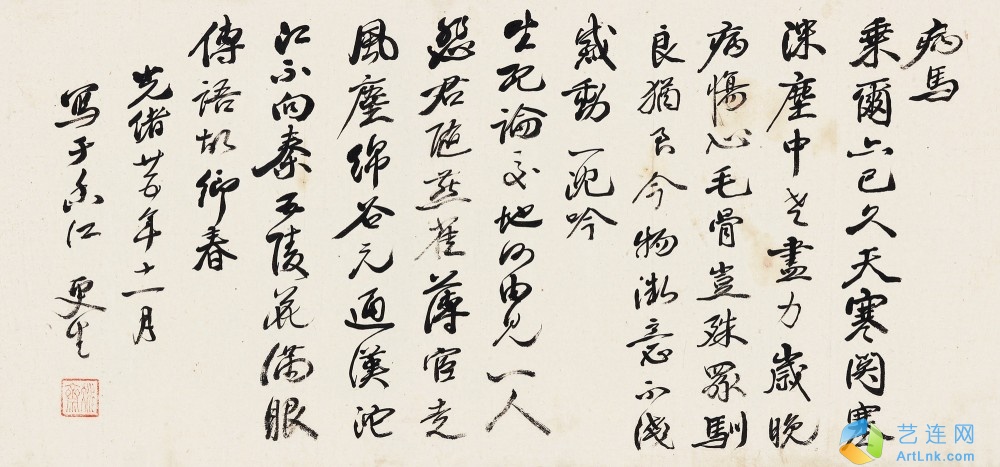 病馬
乘爾亦已久天寒関塞
深塵中老盡力歲晚
病傷心毛骨豈殊眾馴
良猶至今物微意不淺
感動一沉吟
生死論交地何由見一人
悲君隨燕雀薄宦走
風塵綿谷元通漢沱
江不向秦五陵花滿眼
傳語故鄉春
光緒廿年十一月
寫于香江 更生
艺连网
ArtLnk.com